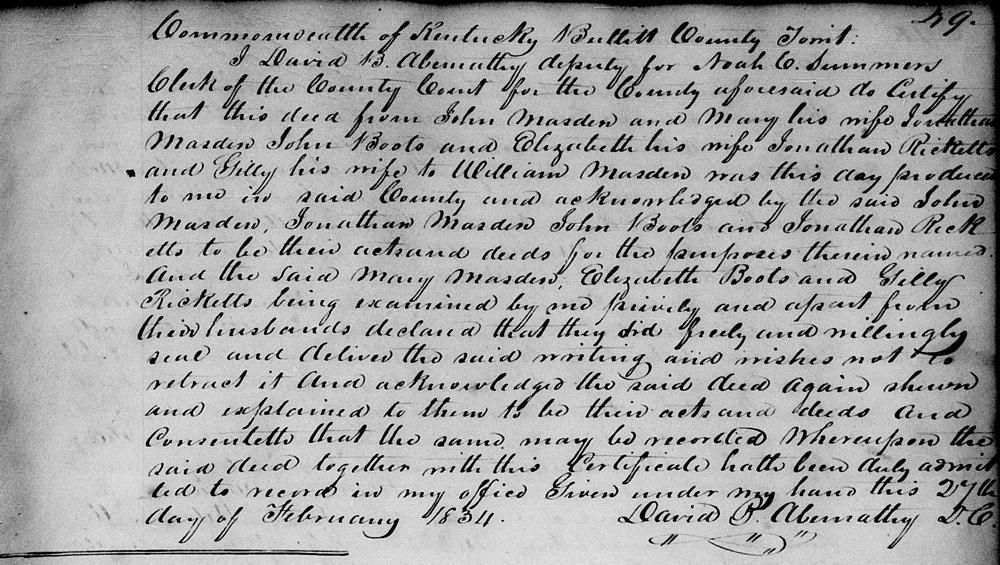 49.
Commonwealth of Kentucky Bullitt County Towit:
I David B. Abernathy deputy for Noah C. Summers
Clerk of the County Court for the County aforesaid do Certify
that this deed from John Masden and Mary his wife Jonathan
Masden John Boots and Elizabeth his wife Jonathan Ricketts
and Gilly his wife to William Masden was this day produced
to me in said County and acknowledged by the said John
Masden, Jonathan Masden John Boots and Jonathan Rick
etts to be their acts and deeds for the purposes therein named.
And the said Mary Masden, Elizabeth Boots and Gilly
Ricketts being examined by me privily and apart from
their husbands declared that they did freely and willingly
seal and deliver the said writing and wishes not to
retract it And acknowledged the said deed again shewn
and explained to them to be their acts and deeds and
Consenteth that the same may be recorded Whereupon the
said deed together with this Certificate hath been duly admit
ted to record in my office Given under my hand this 27th
day of February 1834. David B. Abernathy D.C.